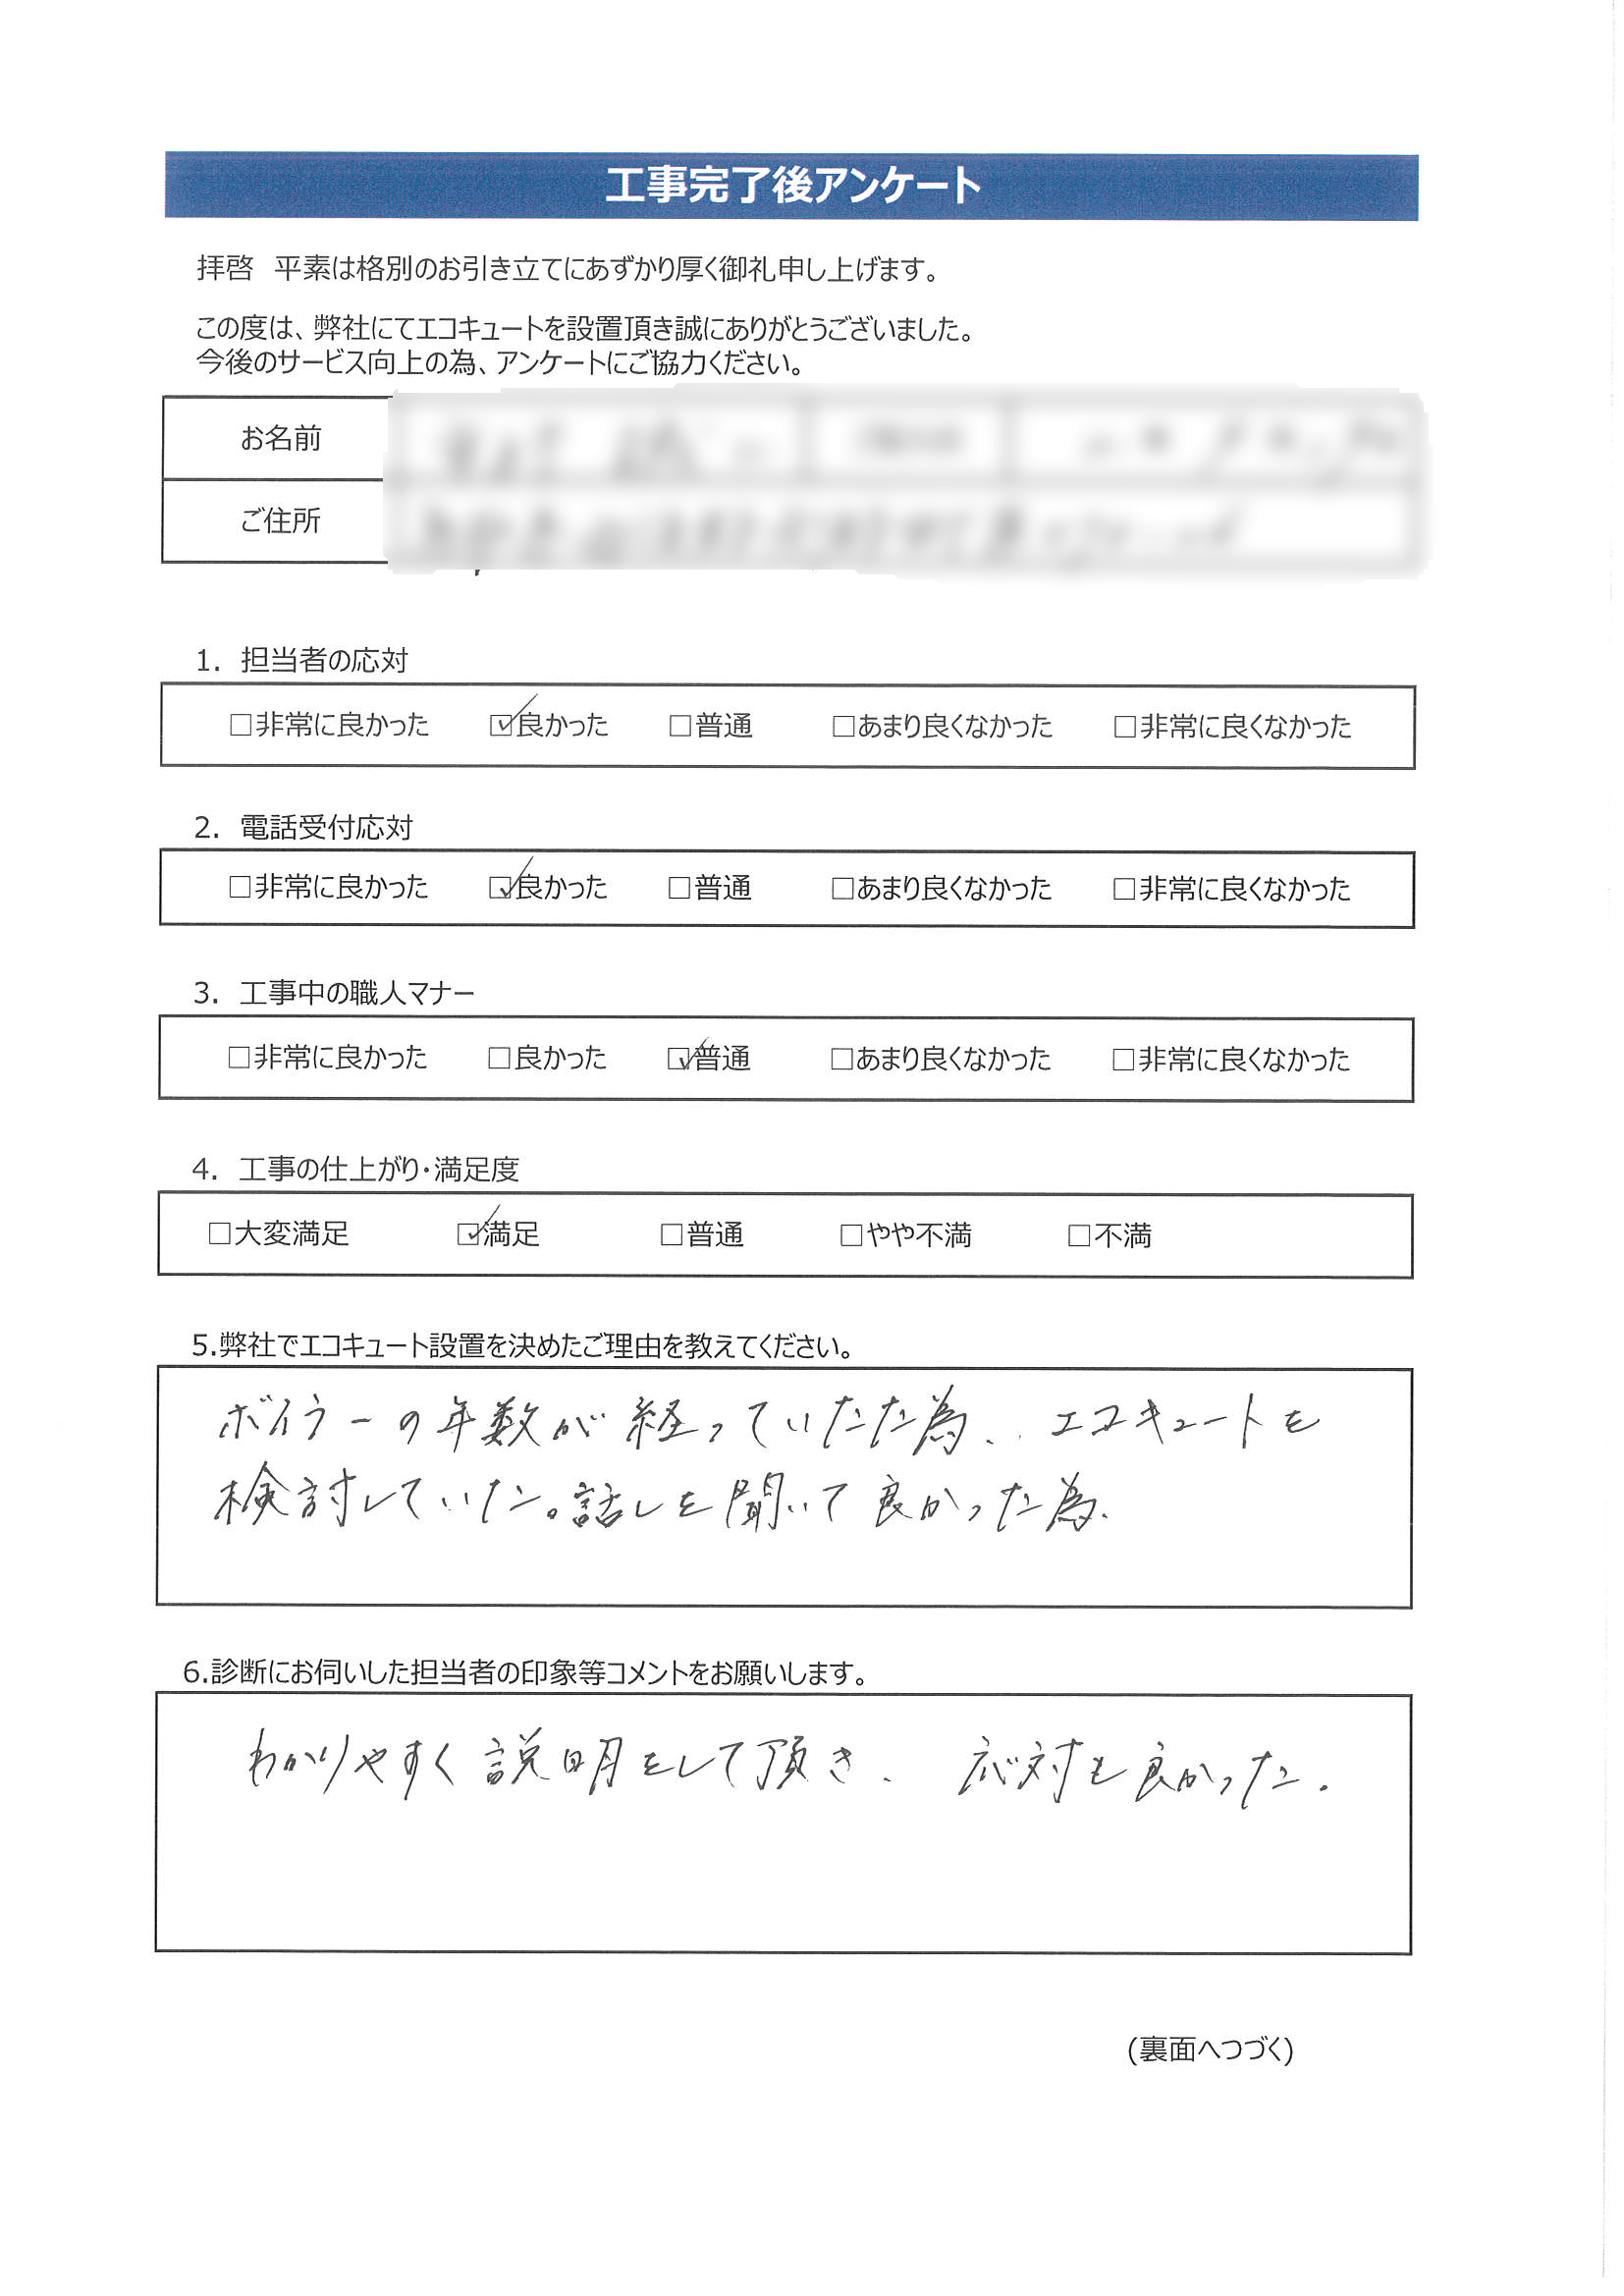 工事完了後アンケート
拝啓　平素は格別のお引き立てにあずかり厚く御礼申し上げます。
この度は、弊社にてエコキュートを設置頂き誠にありがとうございました。
今後のサービス向上の為、アンケートにご協力ください。
お名前
ご住所
1. 担当者の応対
□非常に良かった　☑良かった　□普通　□あまり良くなかった　□非常に良くなかった
2. 電話受付応対
□非常に良かった　☑良かった　□普通　□あまり良くなかった　□非常に良くなかった
3. 工事中の職人マナー
□非常に良かった　□良かった　☑普通　□あまり良くなかった　□非常に良くなかった
4. 工事の仕上がり・満足度
□大変満足　☑満足　□普通　□やや不満　□不満
5.弊社でエコキュート設置を決めたご理由を教えてください。
ボイラーの年数が経っていたた為、エコキュートを
検討していた。話しを聞いて良かった為、
6.診断にお伺いした担当者の印象等コメントをお願いします。
わかりやすく説明をして頂き、応対も良かった。
(裏面へつづく)